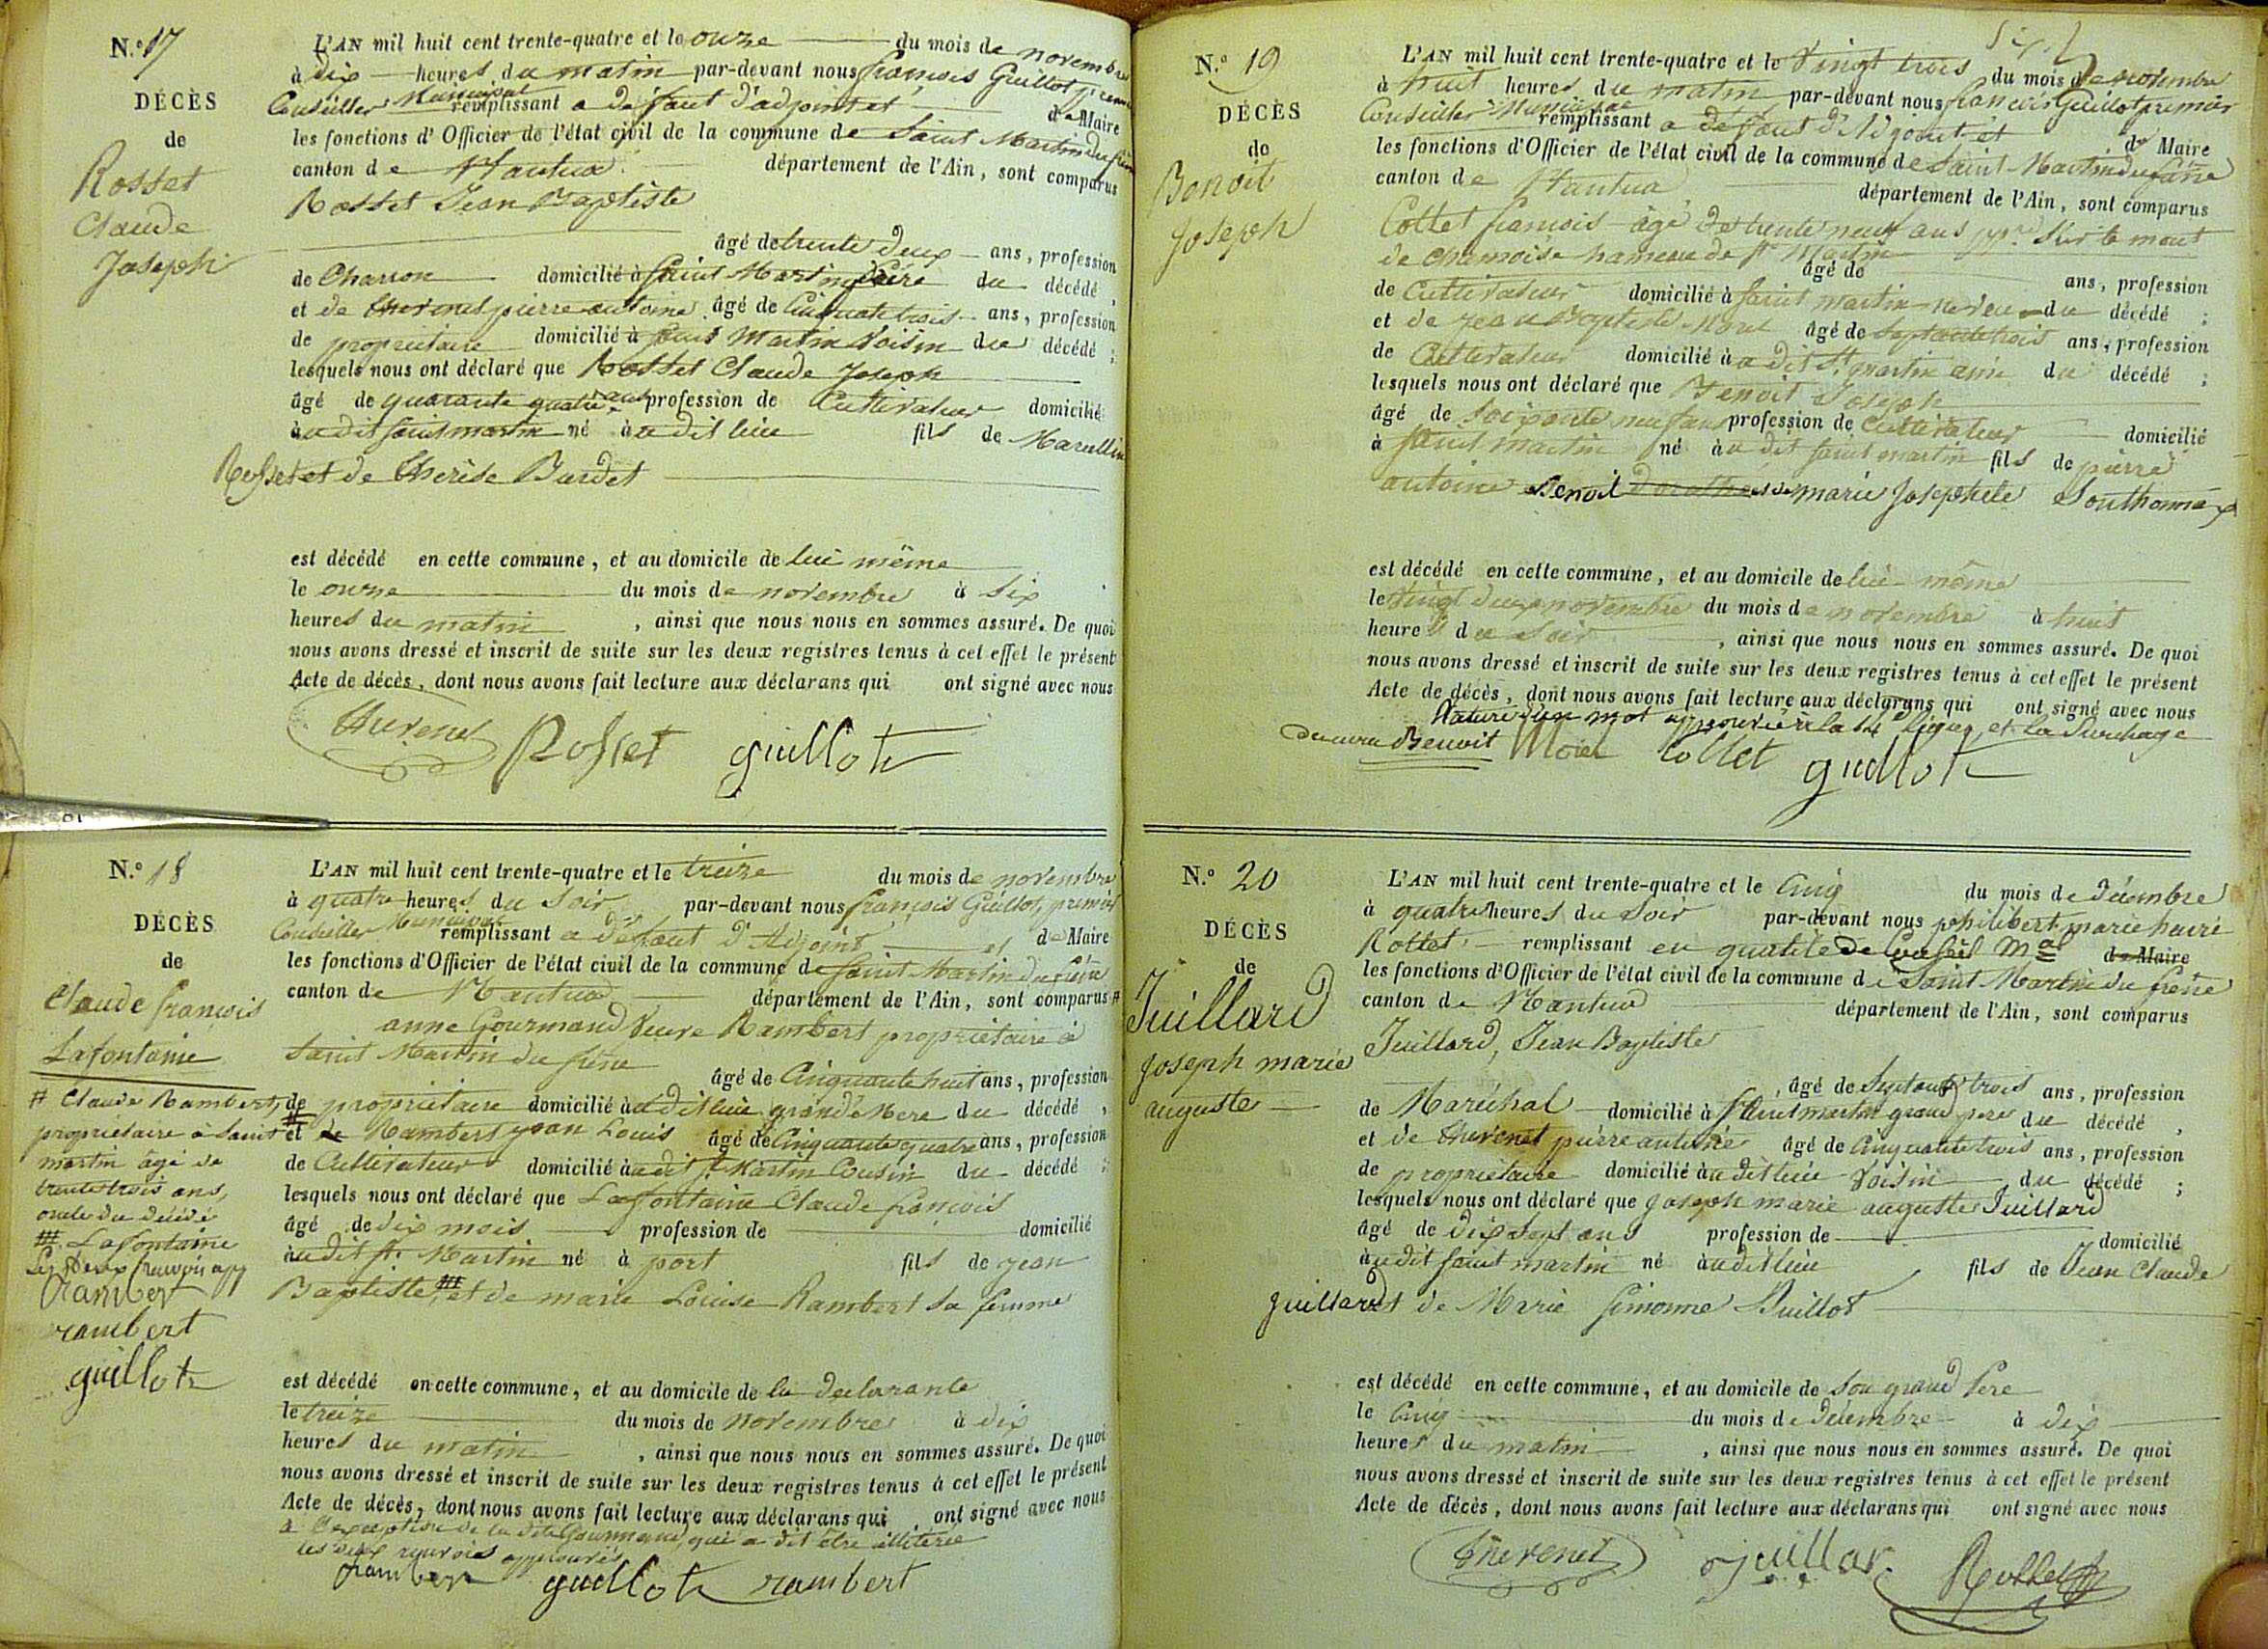 N.° 17
DÉCÈS
de
Rosset
Claude
Joseph
L'AN mil huit cent trente-quatre et le onze du mois de novembre
à dix heures du matin par-devant nous françois Guillot premier
Conseiller Municipal remplissant a défaut d'adjoint et de Maire
les fonctions d'Officier de l'état civil de la commune de Saint Martin du frêne
canton de Nantua département de l'Ain, sont comparus
Rosset Jean Baptiste
âgé de trente deux ans, profession
de Charron domicilié à Saint Martin du décédé,
et de thevenet pierre antoine âgé de Cinquante trois ans, profession
de propriétaire domicilié à Saint Martin Voisin du décédé;
lesquels nous ont déclaré que Rosset Claude Joseph
âgé de quarante quatre ans profession de Cultivateur domicilié
à udit saint martin né à udit lieu fils de Marcellin
Rosset et de thérèse Burdet
est décédé en cette commune, et au domicile de lui même
le onze du mois de novembre à six
heures du matin, ainsi que nous nous en sommes assuré. De quoi
nous avons dressé et inscrit de suite sur les deux registres tenus à cet effet le présent
Acte de décès, dont nous avons fait lecture aux déclarans qui ont signé avec nous
thevenet Rosset guillot
N.° 18
DÉCÈS
de
Claude françois
Lafontaine
# Claude Rambert,
propriétaire à Saint
martin âgé de
trente trois ans,
oncle du décédé
## Lafontaine
Les deux renvois app
Rambert
rambert
guillot
L'AN mil huit cent trente-quatre et le treize du mois de novembre
à quatre heures du soir par-devant nous françois Guillot, premier
Conseiller Municipal remplissant a défaut d'Adjoint et de Maire
les fonctions d'Officier de l'état civil de la commune de Saint Martin du frêne
canton de Nantua département de l'Ain, sont comparus #
anne Gourmand Veuve Rambert propriétaire à
Saint Martin du frêne
âgé de Cinquante huit ans, profession
de propriétaire domicilié à udit lieu grand'Mere du décédé,
et de Rambert jean Louis âgé de Cinquante quatre ans, profession
de Cultivateur domicilié à udit St. Martin Cousin du décédé;
lesquels nous ont déclaré que Lafontaine Claude françois
âgé de dix mois profession de domicilié
à udit St. Martin né à port fils de jean
Baptiste ## et de marie Louise Rambert sa femme
est décédé en cette commune, et au domicile de la declarante
le treize du mois de novembre à dix
heures du matin, ainsi que nous nous en sommes assuré. De quoi
nous avons dressé et inscrit de suite sur les deux registres tenus à cet effet le présent
Acte de décès, dont nous avons fait lecture aux déclarans qui ont signé avec nous
à l'exception de la dite Gourmand, qui a dit être illitérée
les deux renvois approuvés
Rambert guillot rambert
N.° 19
DÉCÈS
de
Benoit
Joseph
L'AN mil huit cent trente-quatre et le Vingt trois du mois de novembre
à huit heures du matin par-devant nous francois Guillot premier
Conseiller Municipal remplissant a défaut d'Adjoint et de Maire
les fonctions d'Officier de l'état civil de la commune de Saint Martin du frêne
canton de Nantua département de l'Ain, sont comparus
Collet francois âgé de trente neuf ans Sur le mont
de Chamoise hameau de St Martin
âgé de ans, profession
de Cultivateur domicilié à saint martin neveu du décédé;
et de jean Baptiste Morel âgé de Septante trois ans, profession
de Cultivateur domicilié à a dit St. martin ami du décédé;
lesquels nous ont déclaré que Benoit Joseph
âgé de soixante neuf ans profession de Cultivateur domicilié
à saint martin né à u dit saint martin fils de pierre
antoine Benoit et de marie Josephete Southonnax
est décédé en cette commune, et au domicile de lui même
le vingt deux novembre du mois de novembre à huit
heures du soir, ainsi que nous nous en sommes assuré. De quoi
nous avons dressé et inscrit de suite sur les deux registres tenus à cet effet le présent
Acte de décès, dont nous avons fait lecture aux déclarans qui ont signé avec nous
Rature d'un mot approuvée à la 14e ligne, et la Surchage
Benoit Morel Collet guillot
N.° 20
DÉCÈS
de
Juillard
Joseph marie
auguste
L'AN mil huit cent trente-quatre et le Cinq du mois de décembre
à quatre heures du Soir par-devant nous philibert marie
Rollet remplissant en qualité de Conseil Mal de Maire
les fonctions d'Officier de l'état civil de la commune de Saint Martin du frêne
canton de Nantua département de l'Ain, sont comparus
Juillard, Jean Baptiste
âgé de Septante trois ans, profession
de Maréchal domicilié à Saint martin grand pere du décédé,
et de thevenet pierre antoine âgé de Cinquante trois ans, profession
de propriétaire domicilié à udit lieu Voisin du décédé;
lesquels nous ont déclaré que joseph marie auguste Juillard
âgé de dix sept ans profession de domicilié
à udit saint martin né à udit lieu fils de Jean Claude
juillard et de Marie Simonne Guillot
est décédé en cette commune, et au domicile de son grand Pere
le Cinq du mois de décembre à dix
heures du matin, ainsi que nous nous en sommes assuré. De quoi
nous avons dressé et inscrit de suite sur les deux registres tenus à cet effet le présent
Acte de décès, dont nous avons fait lecture aux déclarans qui ont signé avec nous
thevenet juillar Rollet